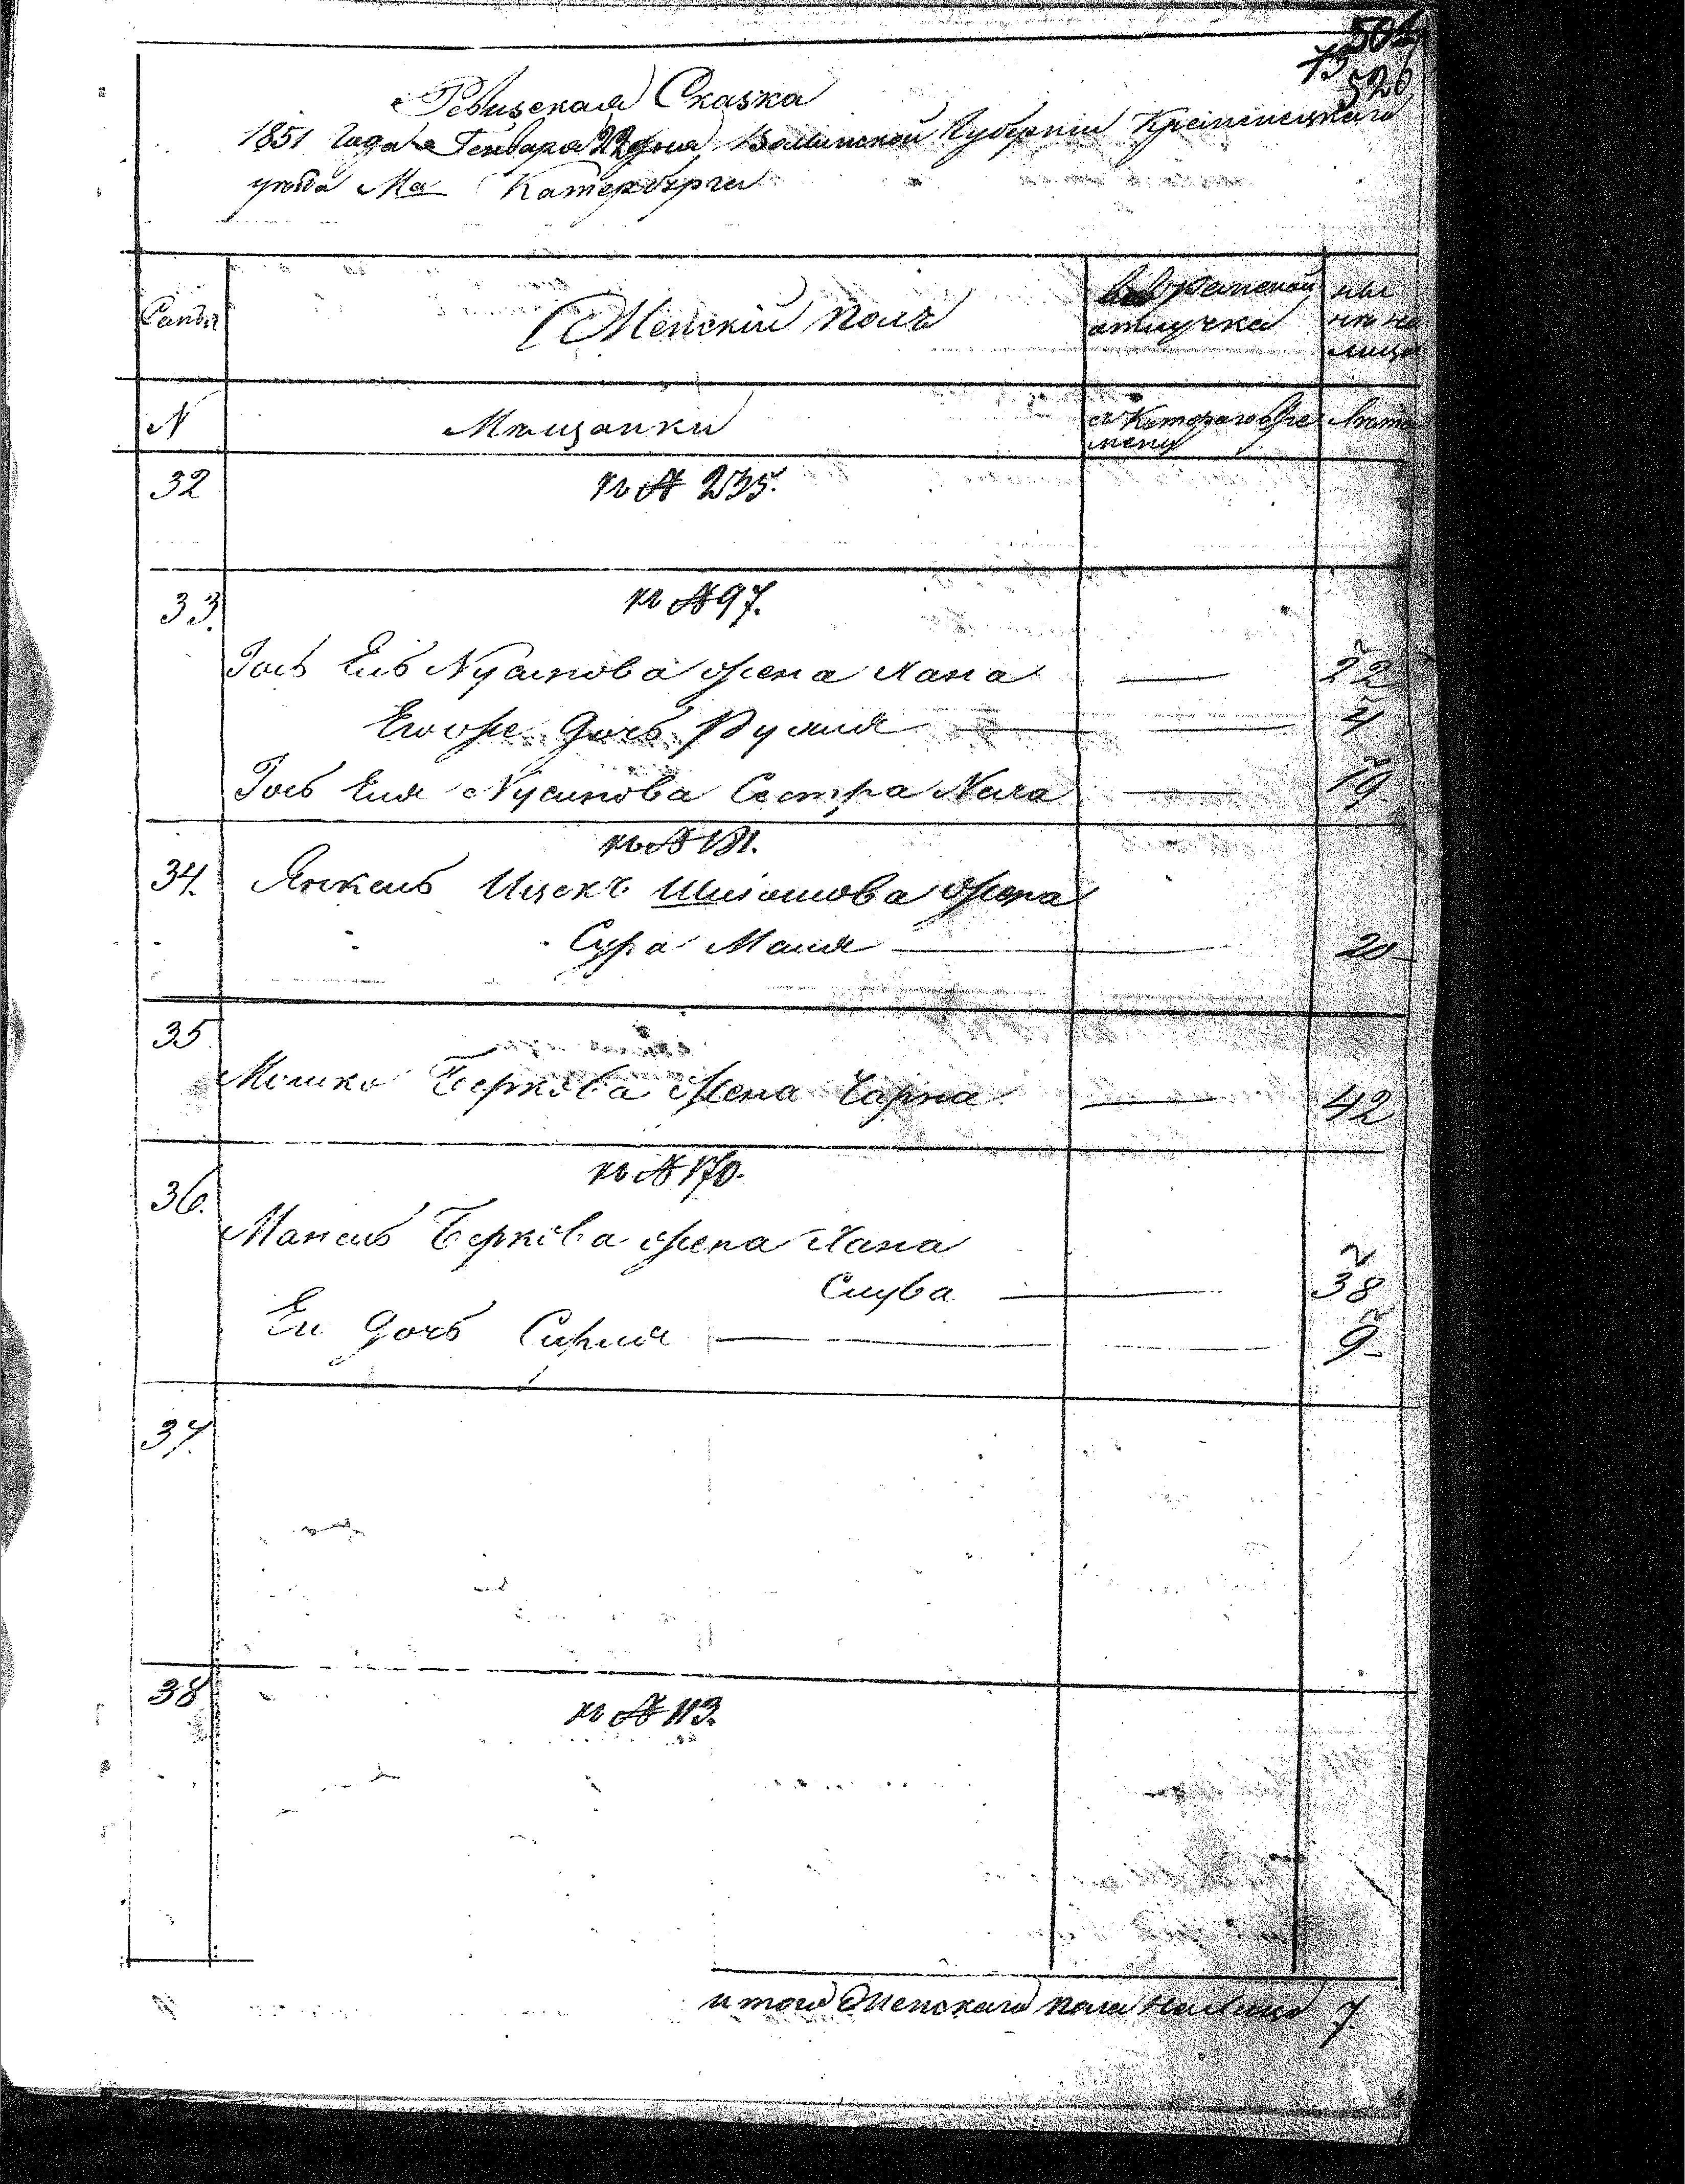 501
73
526
Ревизская Сказка
1851 Года Генваря 22 дня Волынской Губернии Кременецкаго
уезда Ма Катербурги
Семьи
Женскій полъ
во временной
отлучке
ны
нѣ на
лицо
N
Мѣщанки
съ Котораго Вре
мени
Лѣта
32
къ № 235.
33.
къ № 97.
Іось Ель Нусинова жена Хана — 22
Егоже дочь Рухля — 4
Іось Еля Нусинова Сестра Неха — 19
къ № 131.
34. Янкель Ицекъ Шліомова жена
Сура Маля — 20
35
Мошко Беркова Жена Чарна — 42
къ № 170.
36.
Манель Беркова жена Хана
Слува — 38
Ея дочь Сирля — 9
37.
38
къ № 113.
итого Женскаго пола налицо 7.